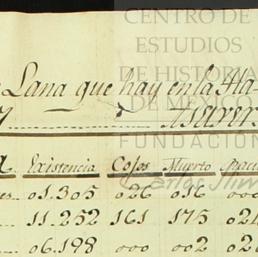 CENTRO DE
ESTUDIOS
DE HISTORIA
DE MÉXICO
FUNDACIÓN
Carlos Slim
Lana que hay en la Ha-
Existencia Cojos Muerto
01.305 026 016 000
11.252 161 175 02
06.198 000 002 02